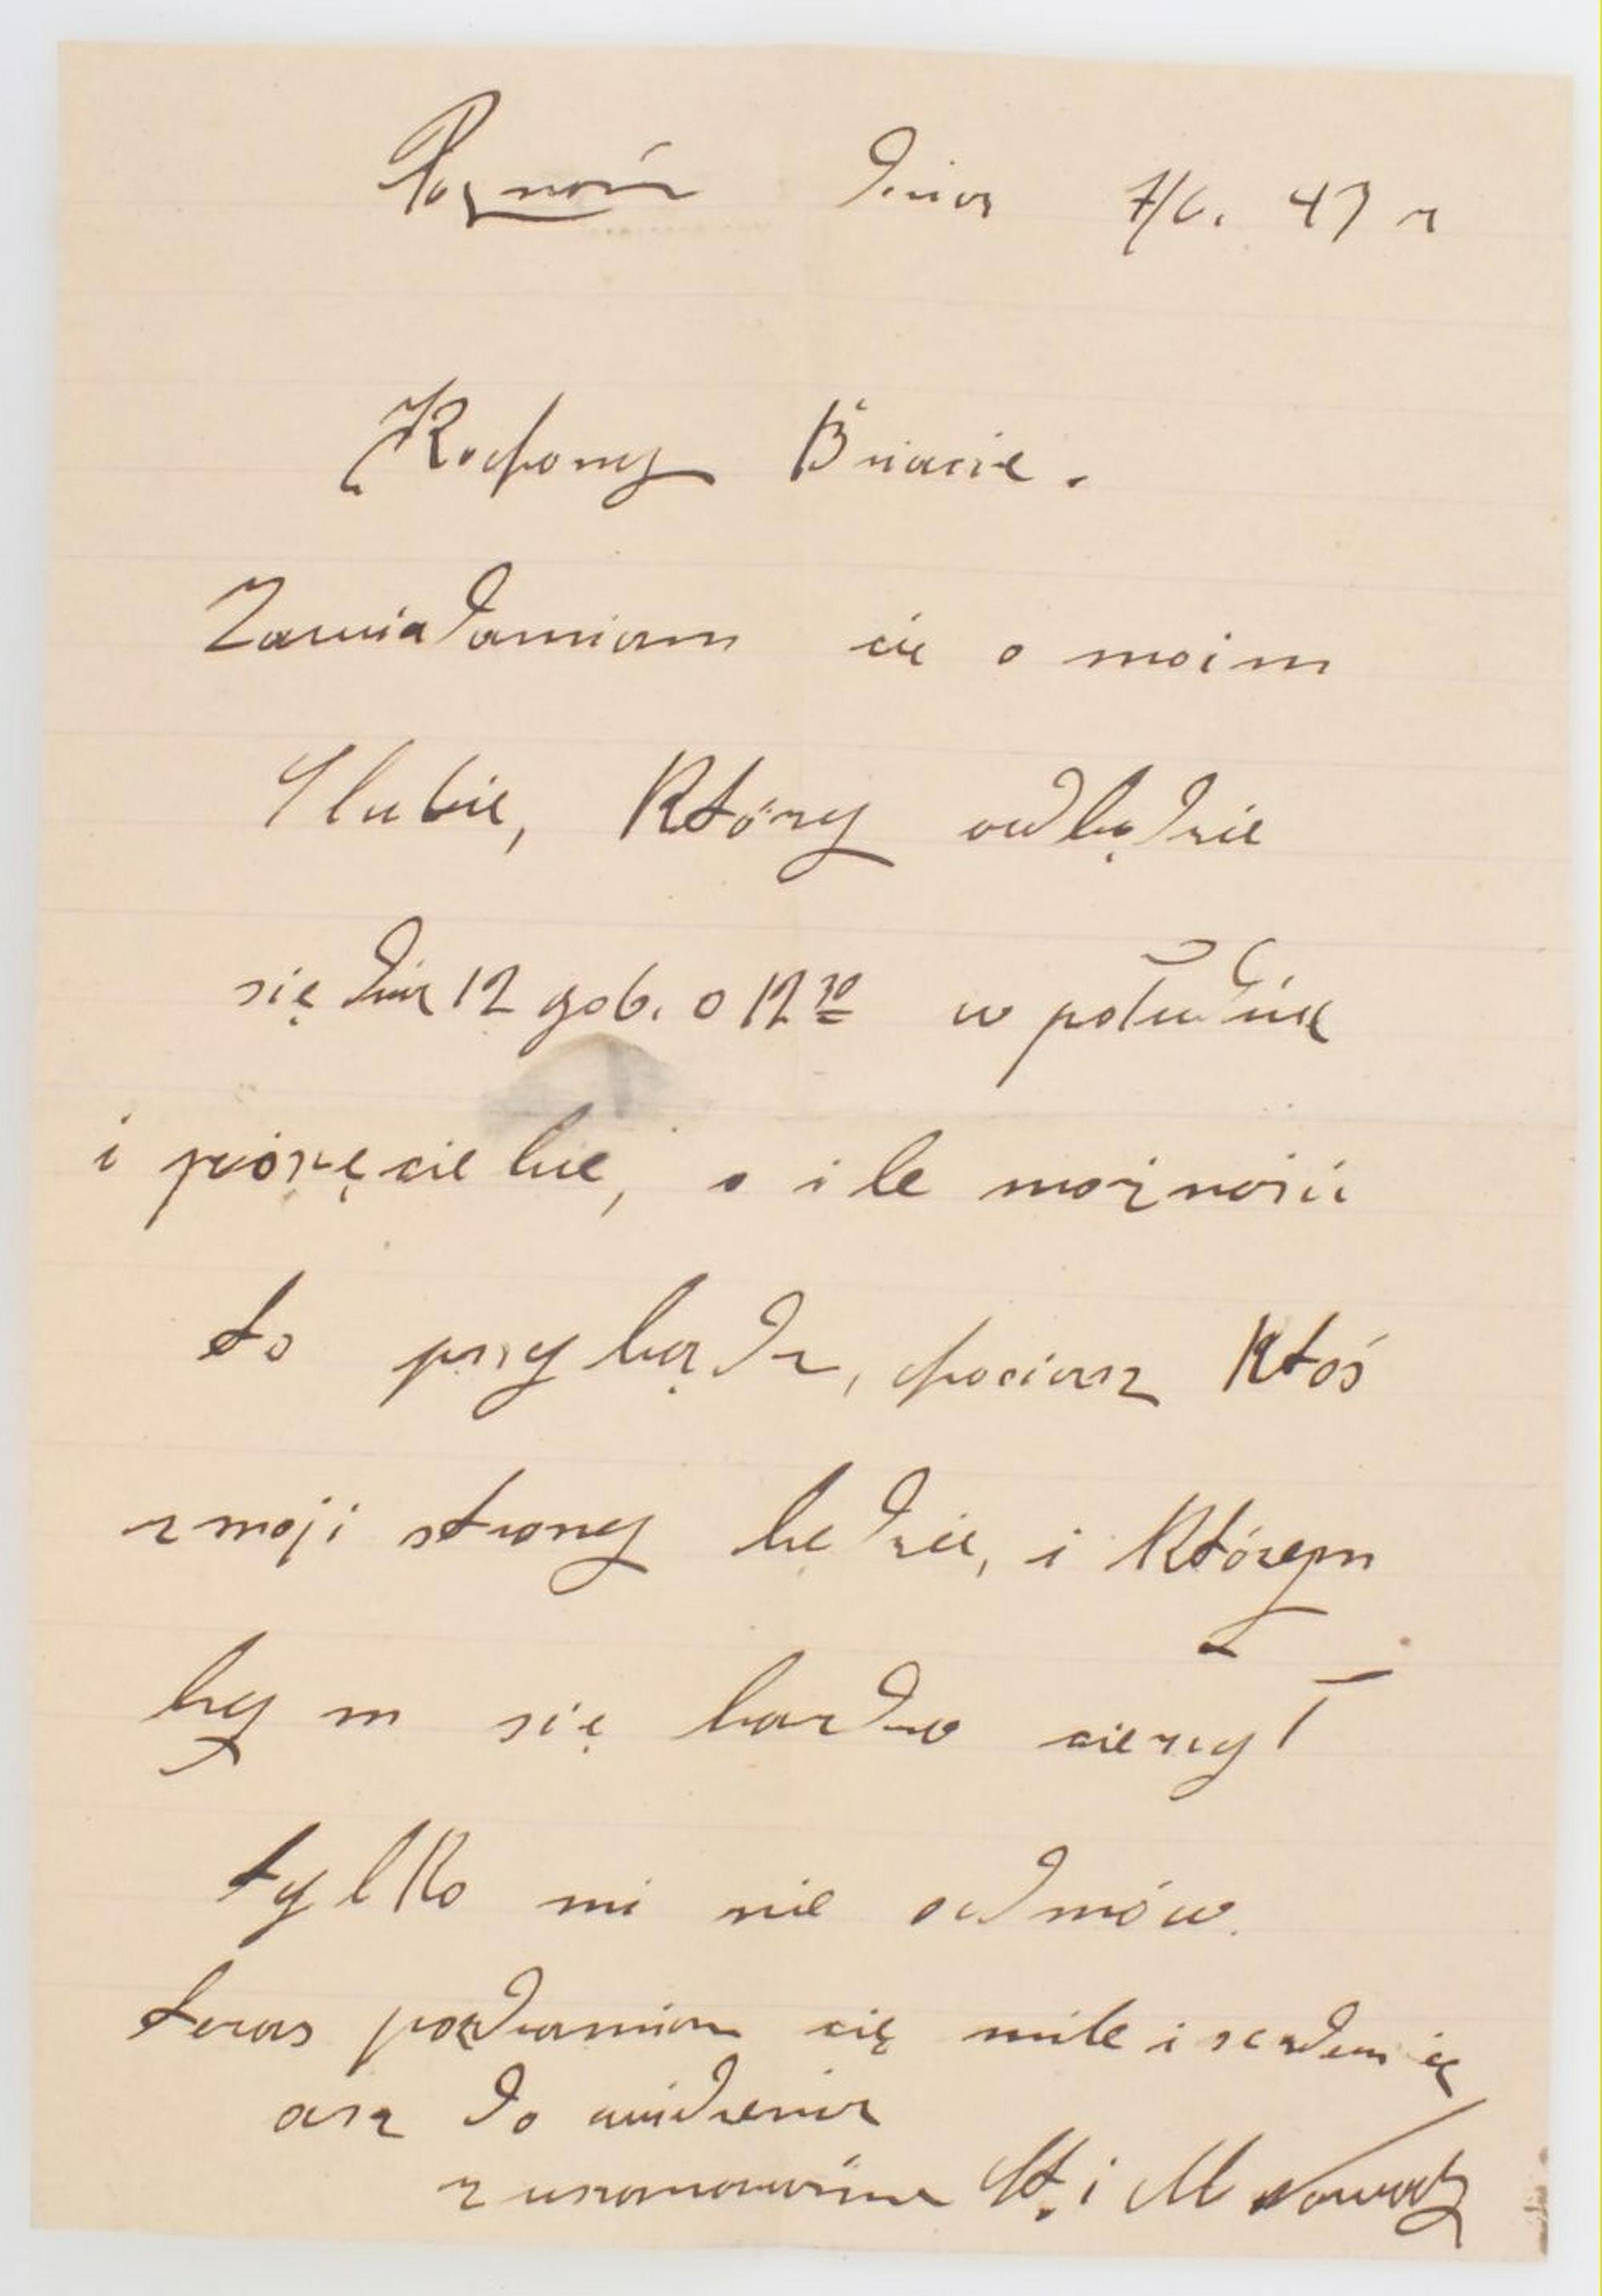 Poznań dnia 7/6. 43 r
Kochany Bracie.
Zawiadamiam cie o moim
Slubie, Który odbędzie
się dnia 12 go b. o 12 30 w południe
i proszę ciebie, o ile możności
to przybądz, chociasz Ktoś
z moji strony będzie, i Którem
bym się bardzo cieszył
tylko mi nie odmów.
teras pozdrawiam cię mile i serdecznie
asz do widzenia
z uszanowaniem St. i M Nowak